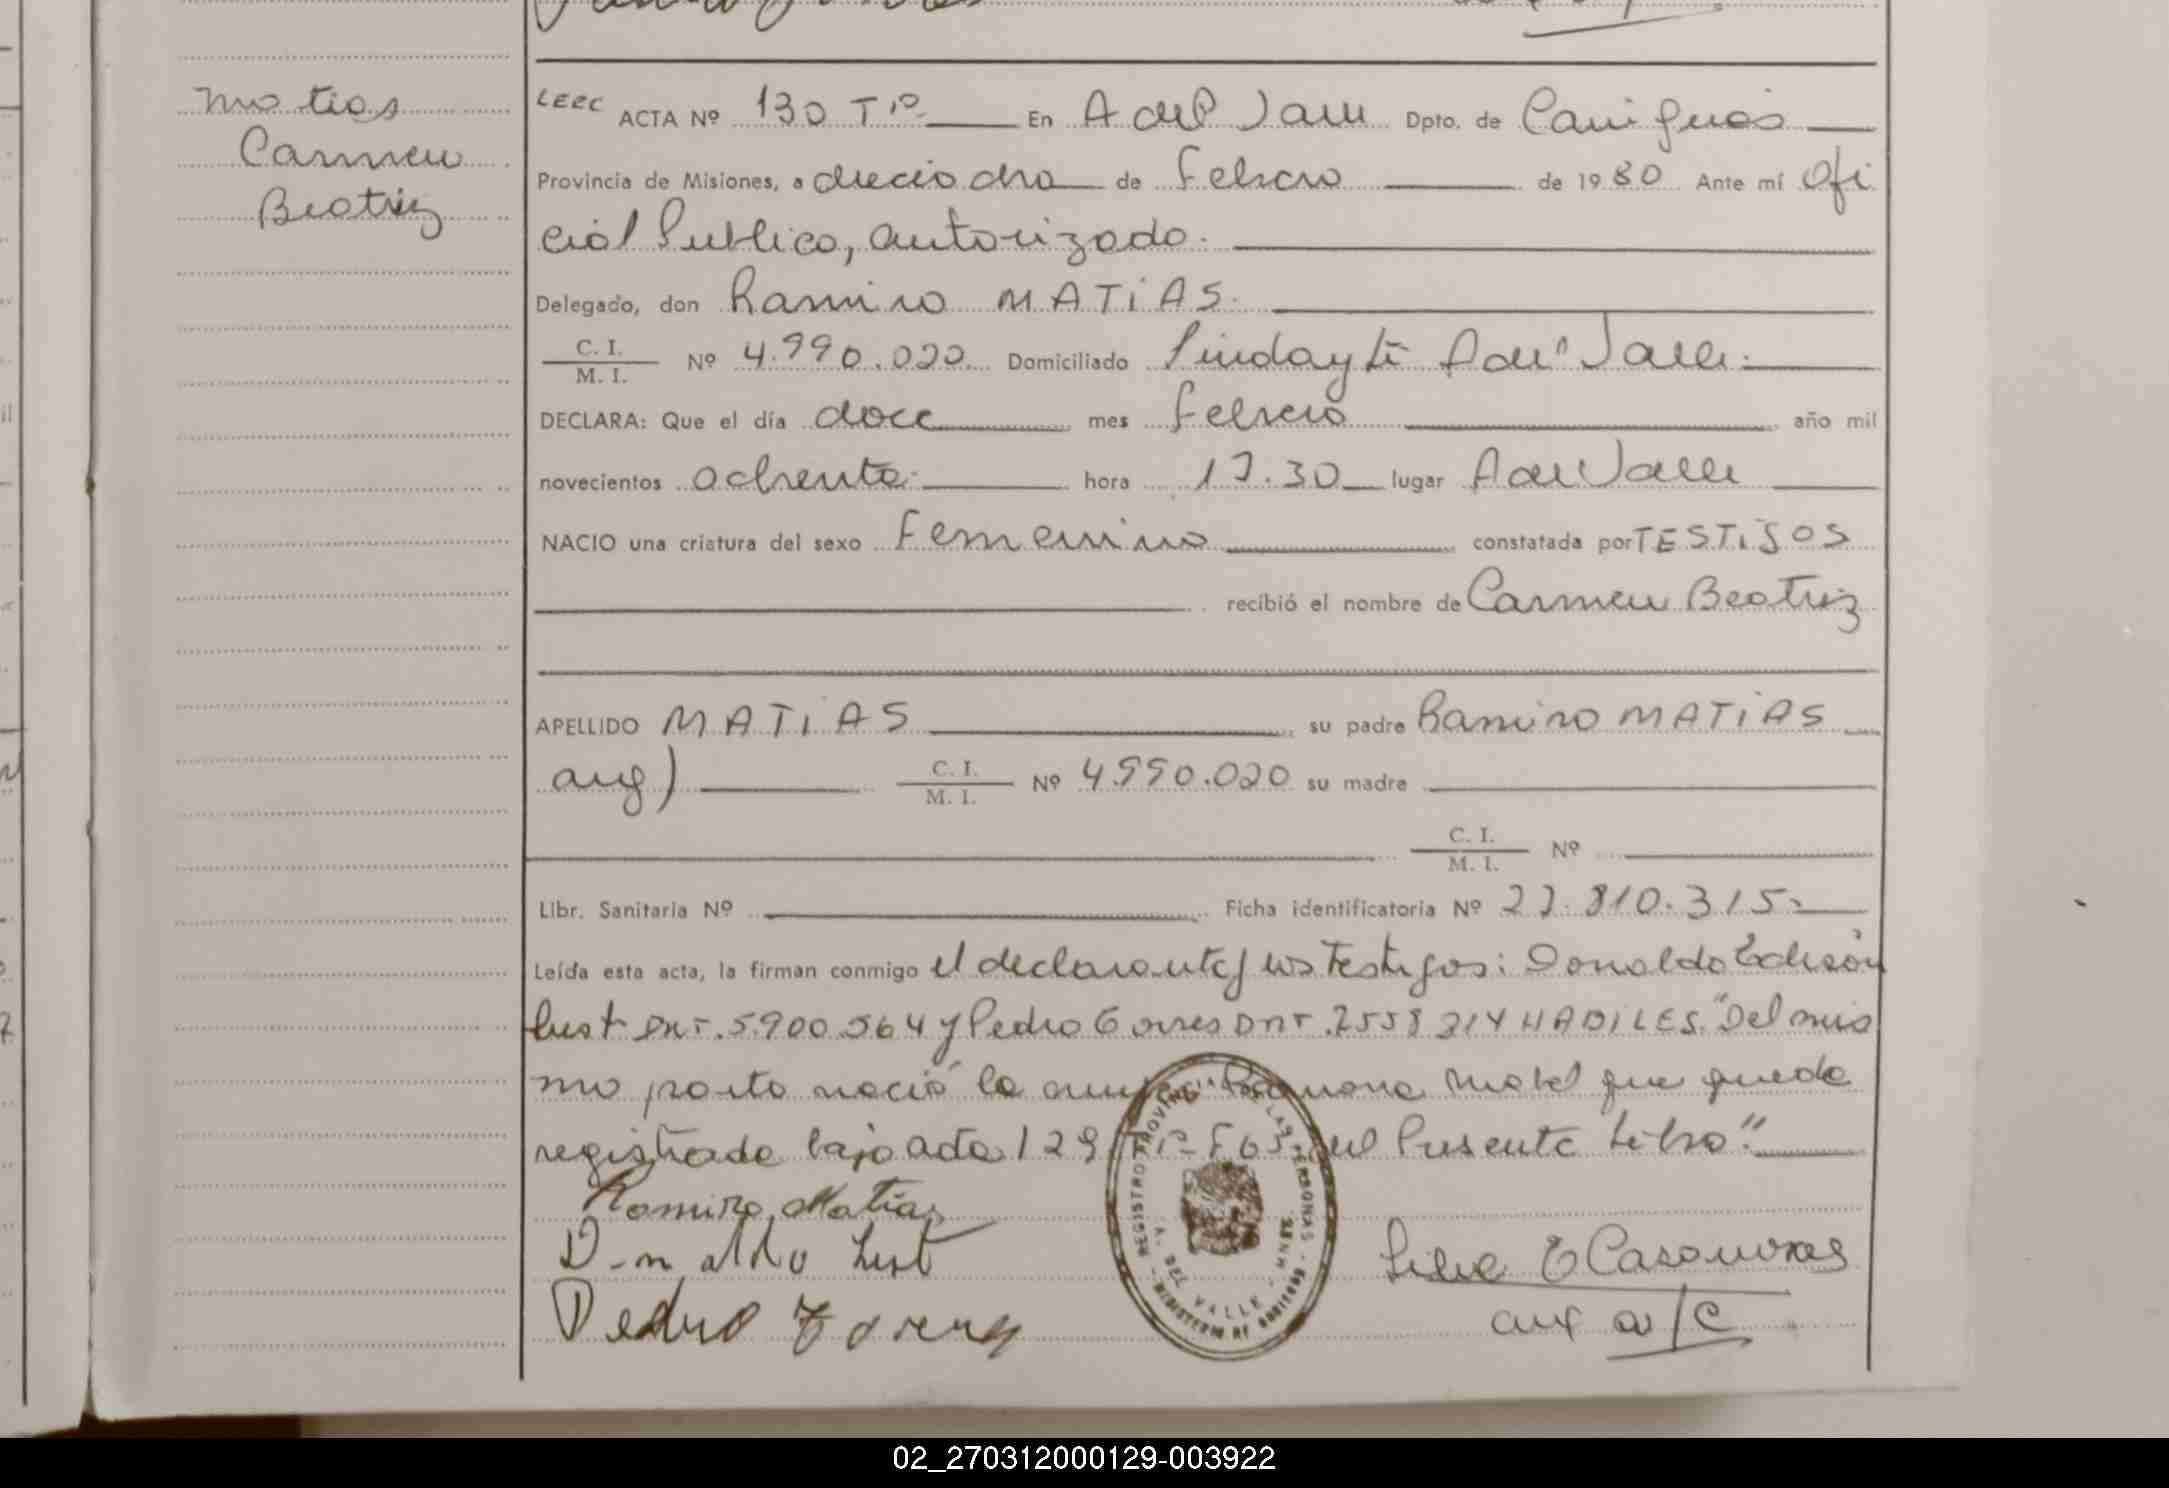 Matias
Carmen
Beatriz
LEEC ACTA Nº 130 Tº En A del Valle Dpto. de Cainguás
Provincia de Misiones, a dieciocho de Febrero de 1980 Ante mí Ofi
cial Publico, autorizado.
Delegado, don Ramiro MATIAS.
C. I.
M. I. Nº 4.990.020. Domiciliado Pindayti A del Valle.
DECLARA: Que el día doce mes Febrero año mil
novecientos ochenta. hora 17.30 lugar A del Valle
NACIO una criatura del sexo Femenino constatada por TESTIGOS
recibió el nombre de Carmen Beatriz
APELLIDO MATIAS su padre Ramiro MATIAS
arg) C. I.
M. I. Nº 4.990.020 su madre
C. I.
M. I. Nº
Libr. Sanitaria Nº Ficha identificatoria Nº 27.810.315.
Leída esta acta, la firman conmigo el declarante y los Testigos: Donaldo Edison
Lust DNI. 5.900.564 y Pedro Torres DNI. 7558314 HABILES. "Del mis
mo parto nació la Ramona Mabel que queda
registrada bajo acta 129 Tº F 65 del Presente Libro".
Ramiro Matias
Donaldo Lust
Pedro Torres
REGISTRO PROVINCIAL DE LAS PERSONAS
A. DEL VALLE - MNES
MINISTERIO DE GOBIERNO
Casanovas
aux a/C
02_270312000129-003922